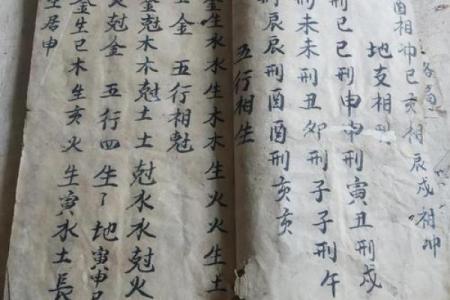 酉相冲巳亥相辰戌相冲
地支相
刑巳巳刑申申刑寅丑刑戌
刑未未刑丑卯刑子子刑午
刑辰辰刑酉酉刑亥亥
五行相生
金生水水生木木生火火生土
生金 五行相尅
金尅木木尅土土尅水水尅火
尅金 五行四生了地寅申巳
金生巳木生亥火生寅水土長
生居申